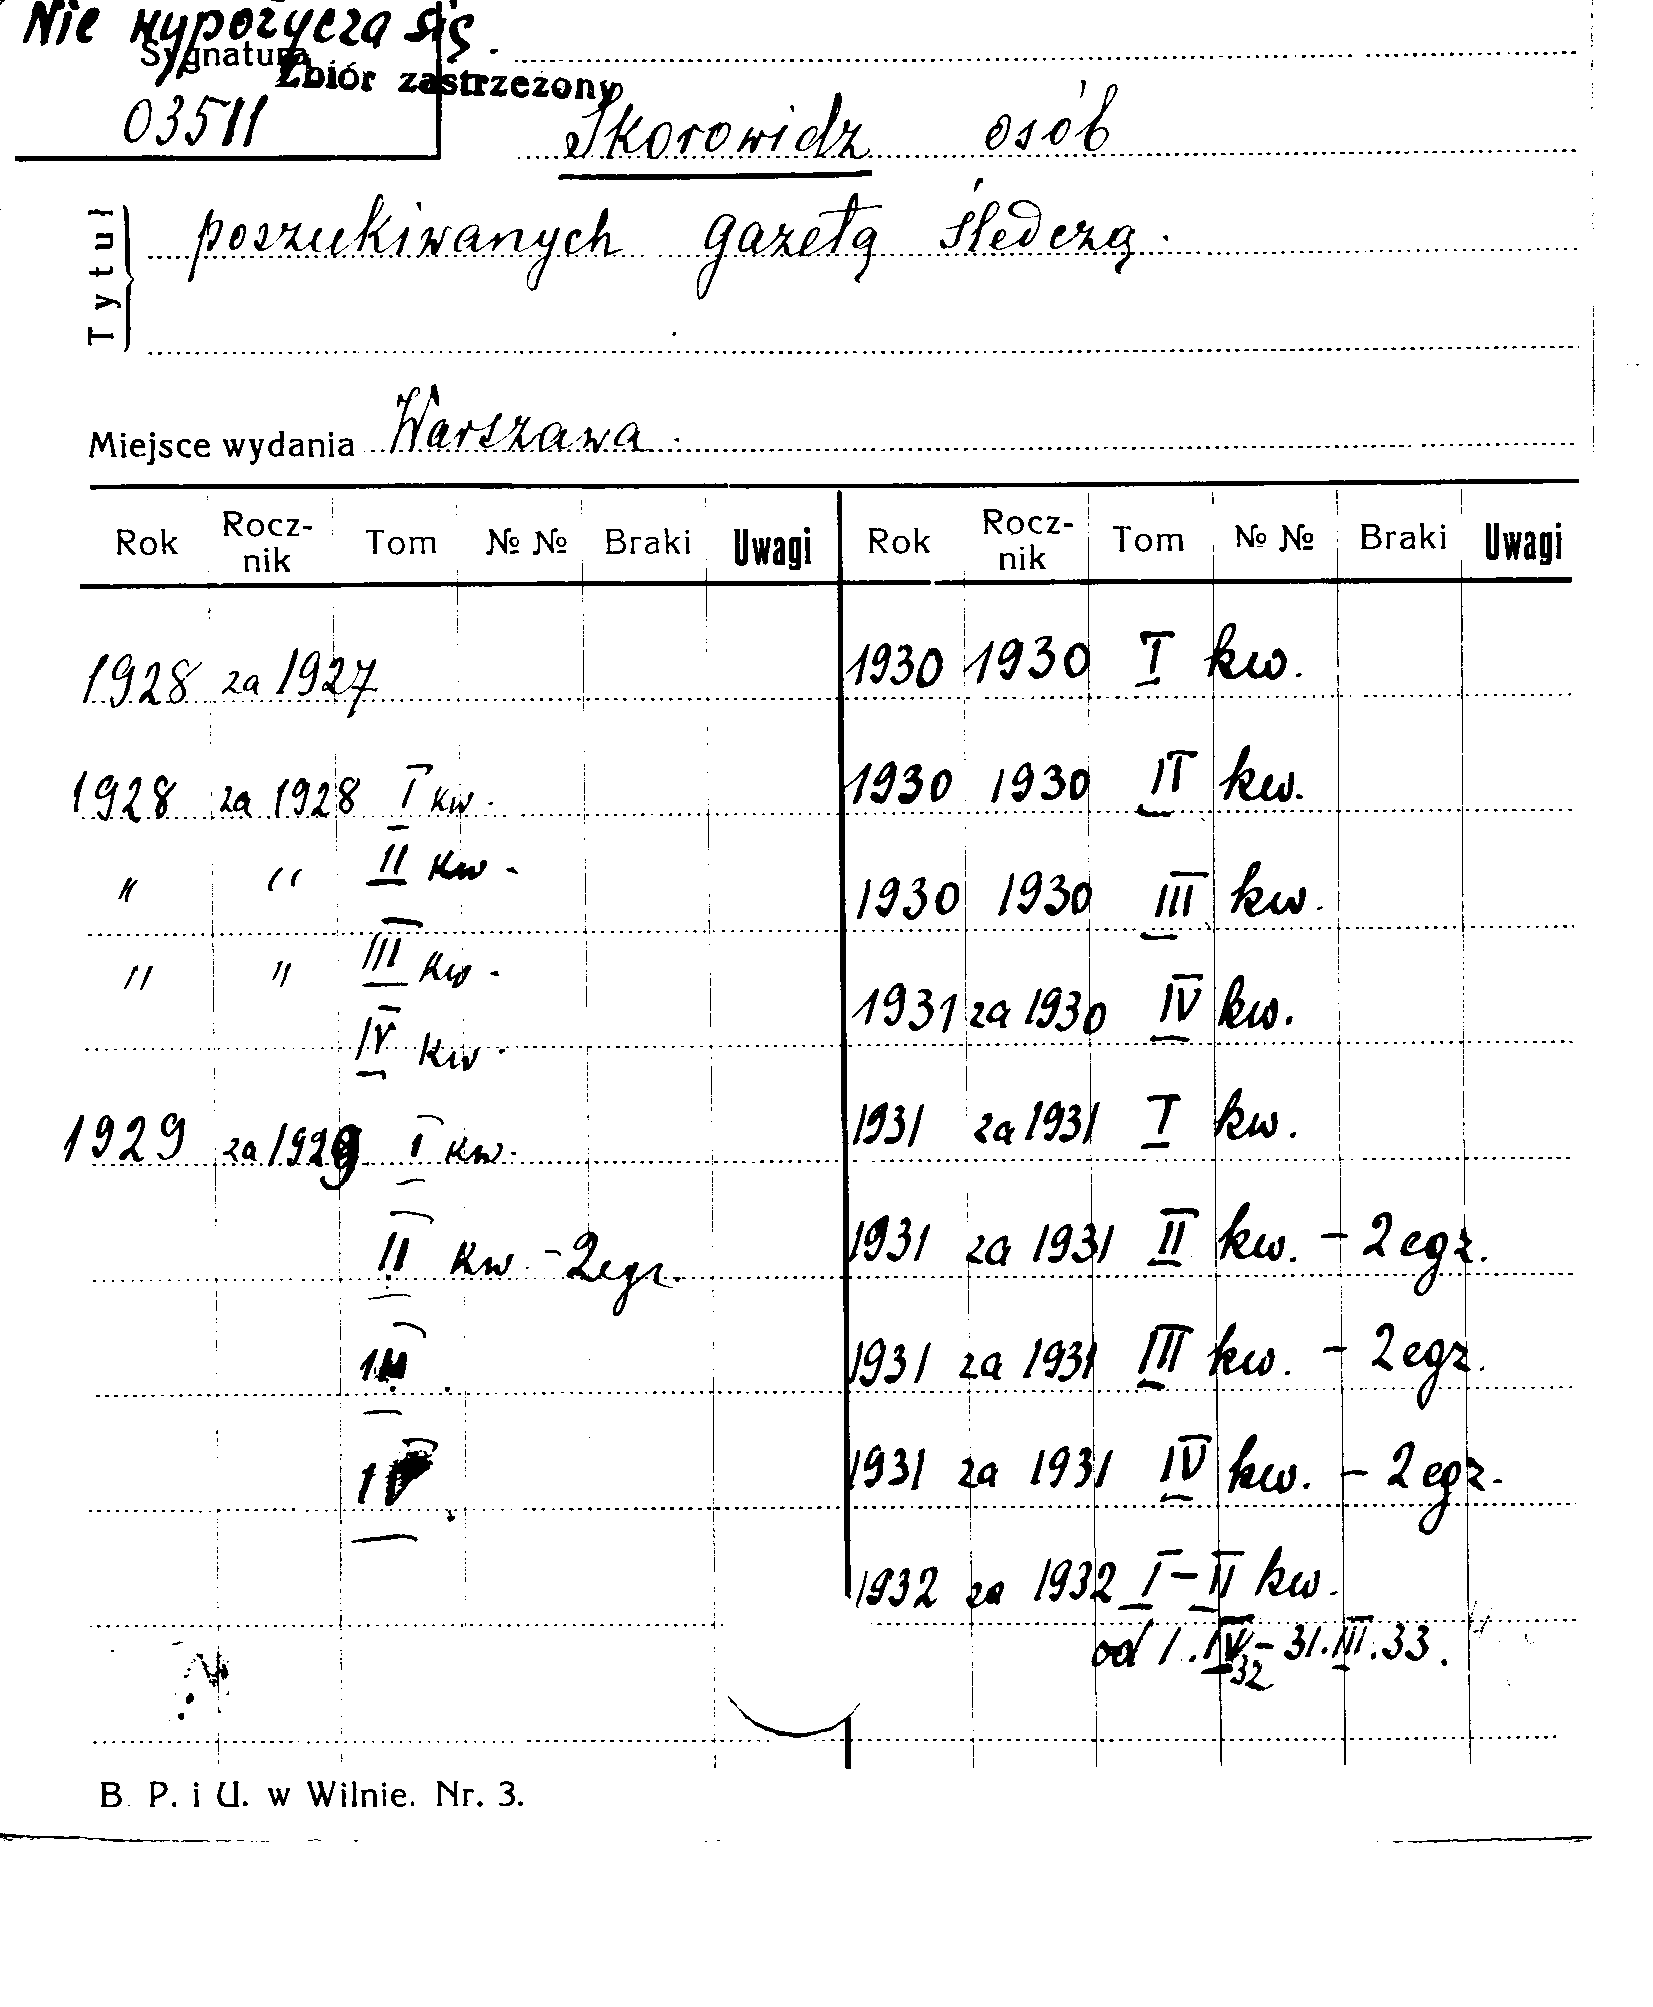 Nie wypożycza się.
Sygnatura
Zbiór zastrzeżony
03511
Skorowidz osób
Tytuł
poszukiwanych gazetą śledczą.
Miejsce wydania Warszawa.
Rok Rocz-nik Tom № № Braki Uwagi Rok Rocz-nik Tom № № Braki Uwagi
1928 za 1927
1928 za 1928 I kw.
" " II kw.
" " III kw.
IV kw.
1929 za 1929 I kw.
II kw. - 2 egz.
III
IV
1930 1930 I kw.
1930 1930 II kw.
1930 1930 III kw.
1931 za 1930 IV kw.
1931 za 1931 I kw.
1931 za 1931 II kw. - 2 egz.
1931 za 1931 III kw. - 2 egz.
1931 za 1931 IV kw. - 2 egz.
1932 za 1932 I - II kw.
od 1. IV 32 - 31. III. 33.
B. P. i U. w Wilnie. Nr. 3.